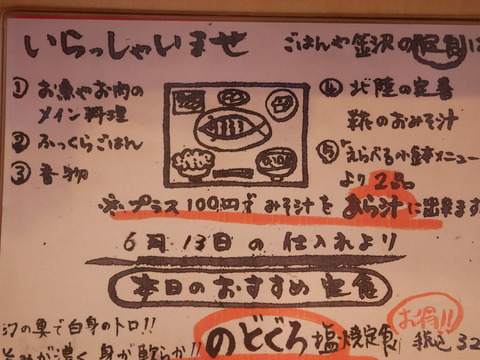 いらっしゃいませ
ごはんや金沢の定食は
① お魚やお肉の
メイン料理
② ふっくらごはん
③ 香物
④ 北陸の定番
糀のおみそ汁
⑤ えらべる小鉢メニュー
より2品
※プラス100円でみそ汁をあら汁に出来ます
6月13日の仕入れより
本日のおすすめ定食
幻の魚で白身のトロ!!
が濃く身が軟らか!!
のどぐろ塩焼定食
お得!!
税込32